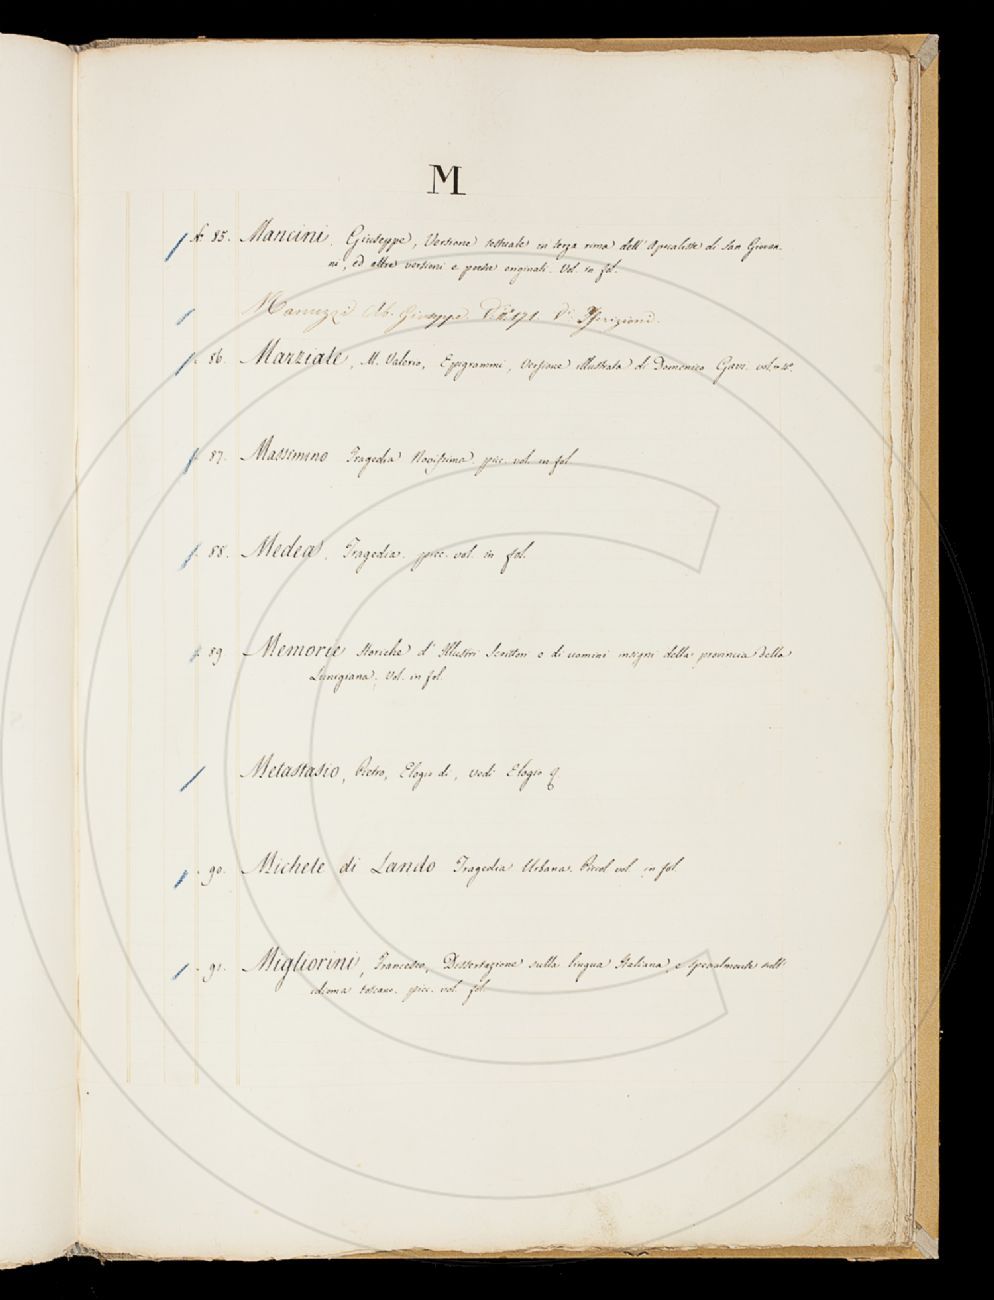 M
N. 85. Mancini, Giuseppe, Versione testuale in terza rima dell'Apocalisse di San Giovan-
ni, ed altre versioni e poesie originali. Vol. in fol.
Manuzzi Ab. Giuseppe Iscrizioni.
86. Marziale, M. Valerio, Epigrammi, Versione illustrata di Domenico Gavi. vol. in 4°.
87. Massimino Tragedia Novissima. picc. vol. in fol.
88. Medea, Tragedia. picc. vol. in fol.
89. Memorie storiche d'Illustri Scrittori e di uomini insigni della provincia della
Lunigiana, Vol. in fol.
Metastasio, Pietro, Elogio di, vedi Elogio
90. Michele di Lando Tragedia Urbana. Piccol vol. in fol.
91. Migliorini, Francesco, Dissertazione sulla lingua Italiana, e specialmente sull'
idioma toscano. picc. vol. fol.